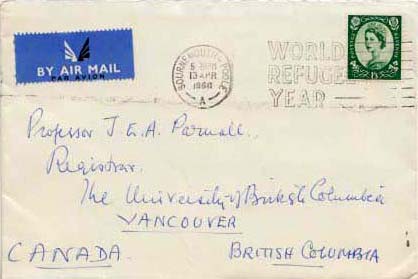 BY AIR MAIL
PAR AVION
BOURNEMOUTH-POOLE
13 APR
1960
A
WORLD
REFUGEE
YEAR
Professor J. E. A. Parnall.
Registrar.
The University of British Columbia
VANCOUVER
CANADA. BRITISH COLUMBIA